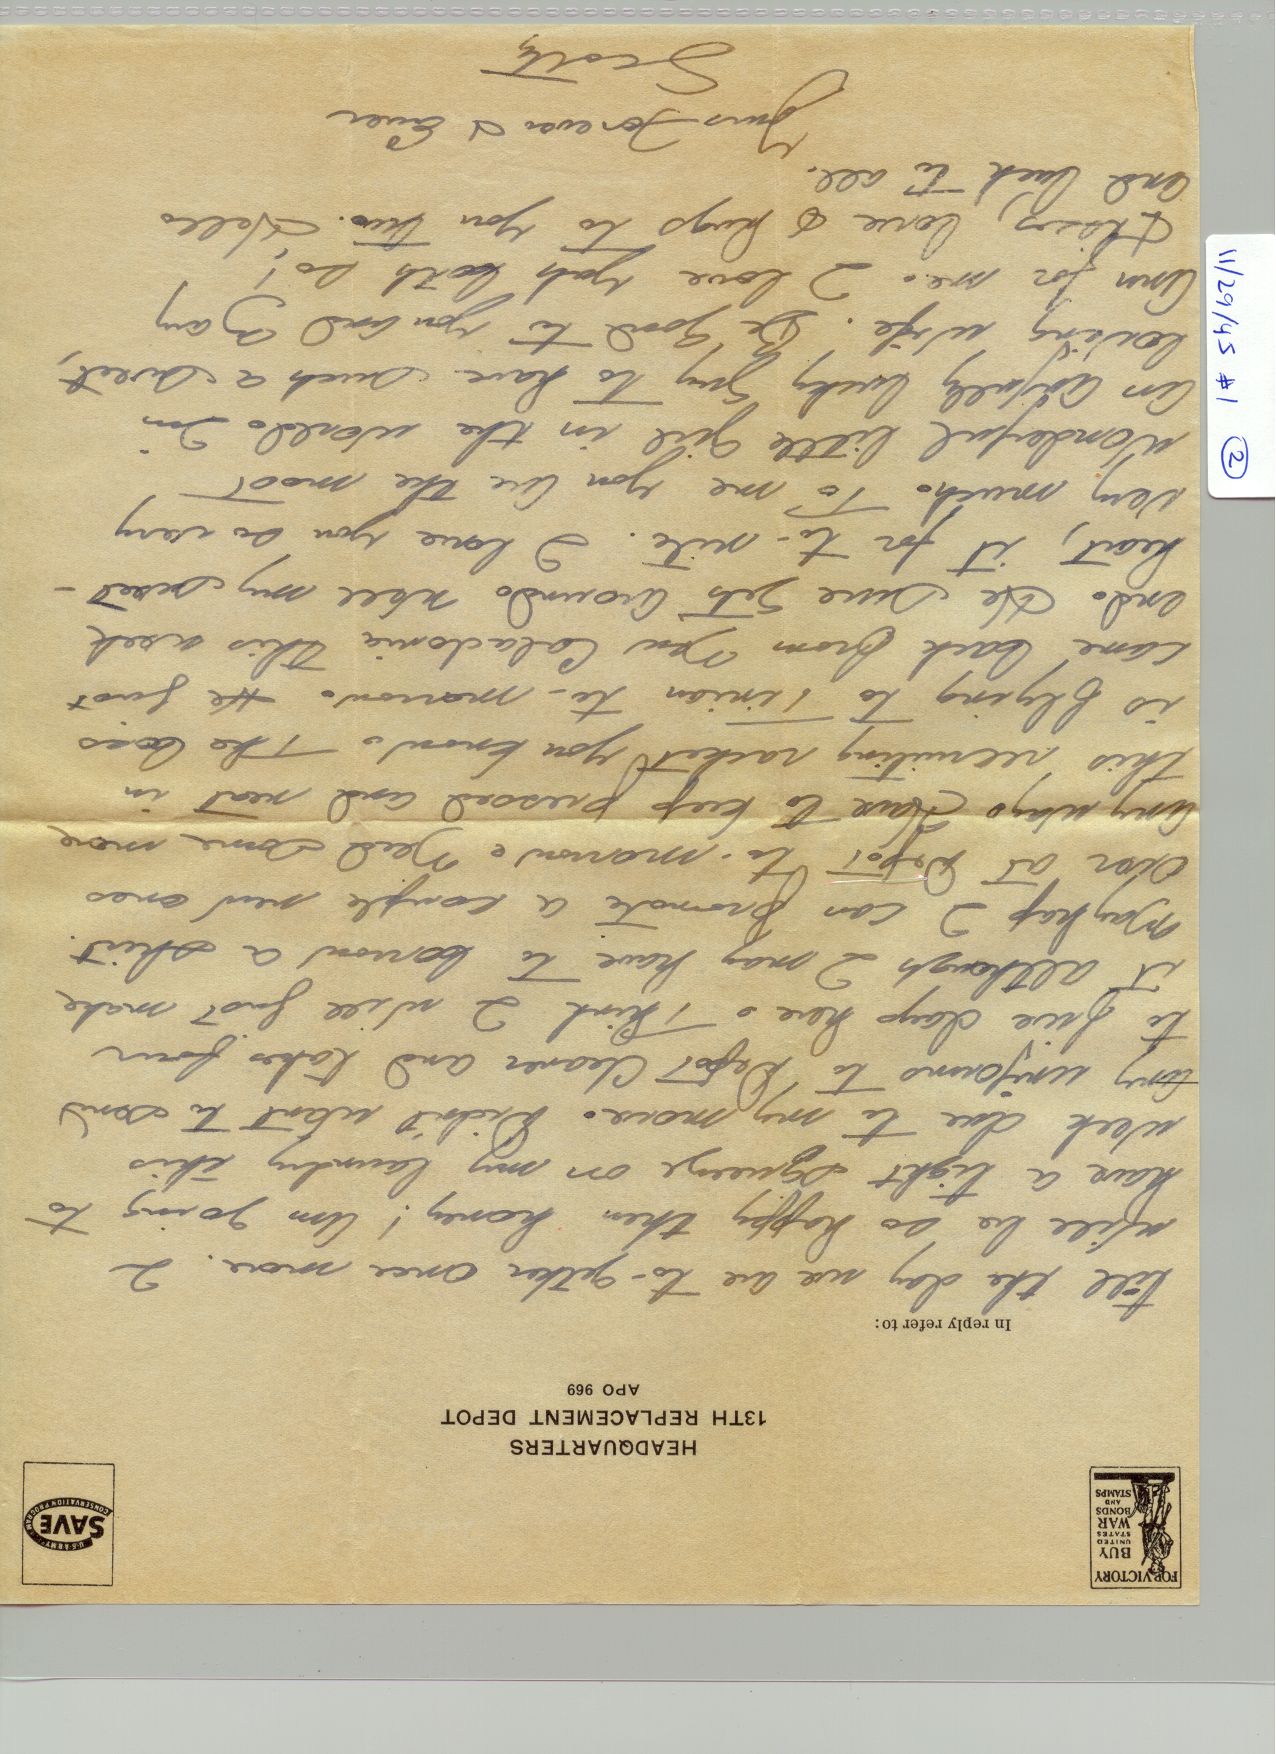 FOR VICTORY
BUY
UNITED
STATES
WAR
BONDS
AND
STAMPS
U·S·ARMY
SAVE
CONSERVATION PROGRAM
HEADQUARTERS
13TH REPLACEMENT DEPOT
APO 969
In reply refer to:
till the day we are to-gether once more. I
will be so happy then honey! Am going to
have a tight squeeze on my laundry this
week due to my move. Didn't want to send
my uniforms to Depot Cleaner and takes four
to five days here. Think I will just make
it although I may have to borrow a shirt.
Mayhap I can promote a couple new ones
over at Depot to-morrow. Need some more
any ways. Have to keep pressed and neat in
this recruiting racket you know. The boss
is flying to Tinian to-morrow. He just
came back from New Caladonia this week
end. He sure gets around. Well my sweet-
heart, it for to-nite. I love you so very
very much. To me you are the most
wonderful little girl in the world. I'm
an awfully lucky guy to have such a sweet,
loving wife. Be good to you and Gary
Ann for me. I love yah both so!
Kisses, love & hugs to you two. Hello
and luck to all.
Yours Forever & Ever
Scotty
11/29/45 #1 2